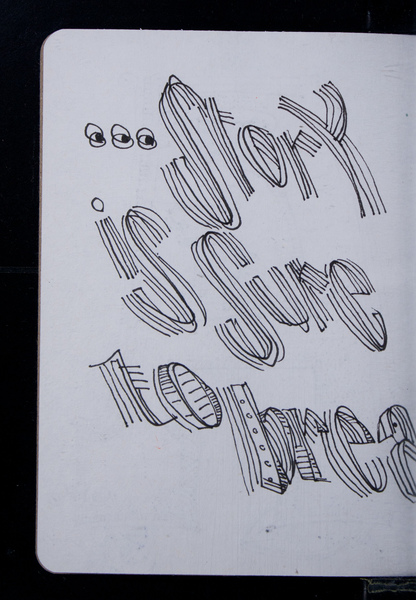 ...Story
is Sure
to brea